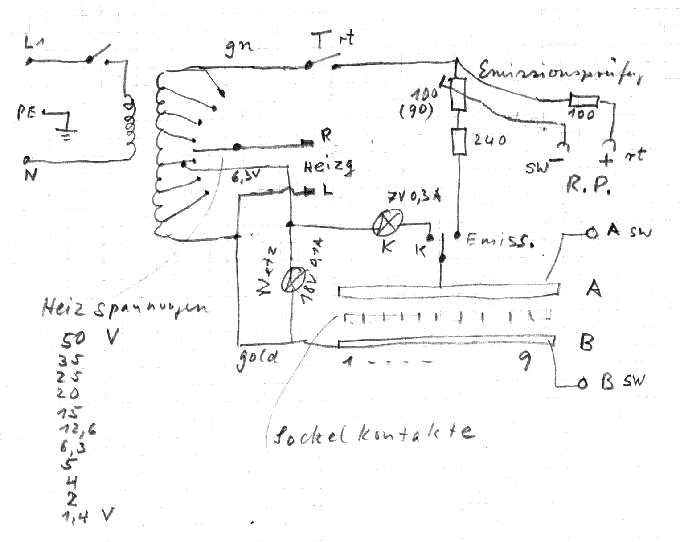 L1
gn
T rt
Emissionsprüfg
100
(90)
100
PE
240
R
Heizg
SW
−
+
rt
N
6,3V
L
R.P.
7V 0,3A
K
K
Emiss.
A SW
Netz
18V 0,1A
A
Heizspannungen
50 V
35
25
20
15
12,6
6,3
5
4
2
1,4 V
B
gold
1 - - - - -
9
B SW
Sockelkontakte